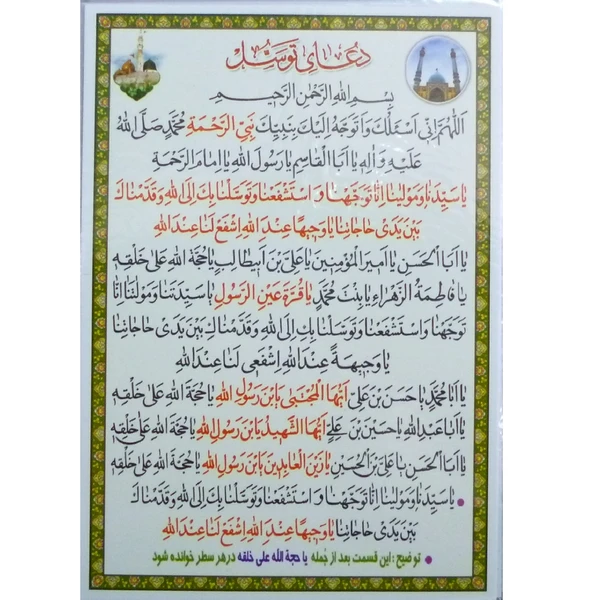 دعای توسل
بِسْمِ اللهِ الرَّحْمٰنِ الرَّحیمِ
اَللّٰهُمَّ اِنّی اَسْئَلُكَ وَ اَتَوَجَّهُ اِلَيْكَ بِنَبِيِّكَ نَبِيِّ الرَّحْمَةِ مُحَمَّدٍ صَلَّى اللهُ
عَلَيْهِ وَ اٰلِهِ يا اَبَا الْقاسِمِ يا رَسُولَ اللهِ يا اِمامَ الرَّحْمَةِ
يا سَيِّدَنا وَ مَوْلينا اِنّا تَوَجَّهْنا وَ اسْتَشْفَعْنا وَ تَوَسَّلْنا بِكَ اِلَى اللهِ وَ قَدَّمْناكَ
بَيْنَ يَدَىْ حاجاتِنا يا وَجيهًا عِنْدَ اللهِ اِشْفَعْ لَنا عِنْدَ اللهِ
يا اَبَا الْحَسَنِ يا اَميرَ الْمُؤْمِنينَ يا عَلِيَّ بْنَ اَبيطالِبٍ يا حُجَّةَ اللهِ عَلى خَلْقِهِ
يا فاطِمَةُ الزَّهْراءِ يا بِنْتَ مُحَمَّدٍ يا قُرَّةَ عَيْنِ الرَّسُولِ يا سَيِّدَتَنا وَ مَوْلاتَنا اِنّا
تَوَجَّهْنا وَ اسْتَشْفَعْنا وَ تَوَسَّلْنا بِكِ اِلَى اللهِ وَ قَدَّمْناكِ بَيْنَ يَدَىْ حاجاتِنا
يا وَجيهَةً عِنْدَ اللهِ اِشْفَعى لَنا عِنْدَ اللهِ
يا اَبا مُحَمَّدٍ يا حَسَنَ بْنَ عَلِيٍّ اَيُّهَا الْمُجْتَبى يَا بْنَ رَسُولِ اللهِ يا حُجَّةَ اللهِ عَلى خَلْقِهِ
يا اَبا عَبْدِ اللهِ يا حُسَيْنَ بْنَ عَلِيٍّ اَيُّهَا الشَّهيدُ يَا بْنَ رَسُولِ اللهِ يا حُجَّةَ اللهِ عَلى خَلْقِهِ
يا اَبَا الْحَسَنِ يا عَلِيَّ بْنَ الْحُسَيْنِ يا زَيْنَ الْعابِدينَ يَا بْنَ رَسُولِ اللهِ يا حُجَّةَ اللهِ عَلى خَلْقِهِ
• يا سَيِّدَنا وَ مَوْلينا اِنّا تَوَجَّهْنا وَ اسْتَشْفَعْنا وَ تَوَسَّلْنا بِكَ اِلَى اللهِ وَ قَدَّمْناكَ
بَيْنَ يَدَىْ حاجاتِنا يا وَجيهًا عِنْدَ اللهِ اِشْفَعْ لَنا عِنْدَ اللهِ
• توضیح : این قسمت بعد از جمله یا حجة الله علی خلقه در هر سطر خوانده شود